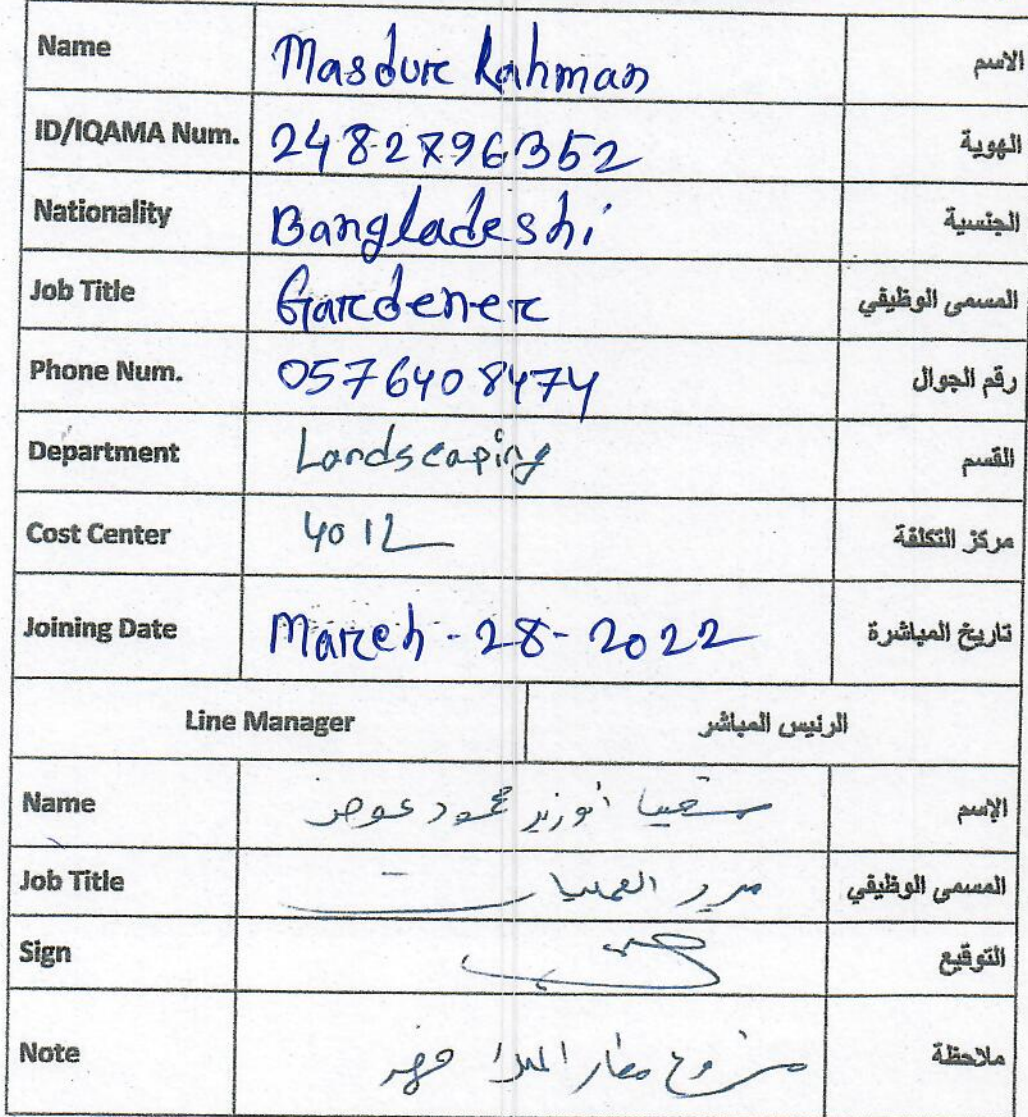 Name Masdur Rahman الاسم
ID/IQAMA Num. 2482796352 الهوية
Nationality Bangladeshi الجنسية
Job Title Gardener المسمى الوظيفي
Phone Num. 0576408474 رقم الجوال
Department Landscaping القسم
Cost Center 4012 مركز التكلفة
Joining Date March-28-2022 تاريخ المباشرة
Line Manager الرئيس المباشر
Name محمود عوض الإسم
Job Title مدير العمليات المسمى الوظيفي
Sign التوقيع
Note مشروع مطار الملك فهد ملاحظة